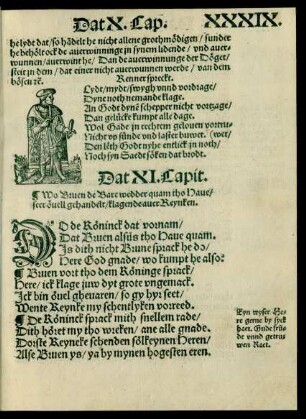 Dat X. Cap. XXXIX.
he lyde dat / so hödelt he nicht allene grothmödigen / sunder
he beholt ock de auerwinninge in synem lidende / vnd auer-
wunnen / auerwint he / Dan de auerwinninge der Döget /
steit jn dem / dat einer nicht auerwunnen werde / van dem
bösen rc.
Renner spreckt.
Lyde / myde / swygh vnnd vordrage /
Dyne noth nemande klage.
An Godt dyne schepper nicht vorzage /
Dan gelücke kumpt alle dage.
Wol Gade jn rechtem gelouen
Nicht vp sünde vnd laster buwet.
Den leth Godt nyhe entlick jn noth /
Noch syn Saedt söken dat brodt.
Dat XI. Capit.
¶ Wo Bruen de Bare wedder quam tho Haue /
seer öuel gehandelt / klagende auer Reynken.
DO de Köninck dat vornam /
Dat Bruen alsüs tho Haue quam.
Is dith nicht Brune sprack he do /
Here God gnade / wo kumpt he also?
¶ Bruen vort tho dem Köninge sprack /
Here / ick klage juw dyt grote vngemack.
Ick bin öuel gheuaren / so gy hyr seet /
Wente Reynke my schentlyken vorreed.
¶ De Köninck sprack mith snellem rade /
Dith höret my tho wreken / ane alle gnade.
Dorste Reyncke schenden sölkeynen Heren /
Alse Bruen ys / ya by mynen hogesten eren.
Eyn wyser He-
re gerne by syck
hat. Gude frü-
de vnnd getru-
wen Raet.